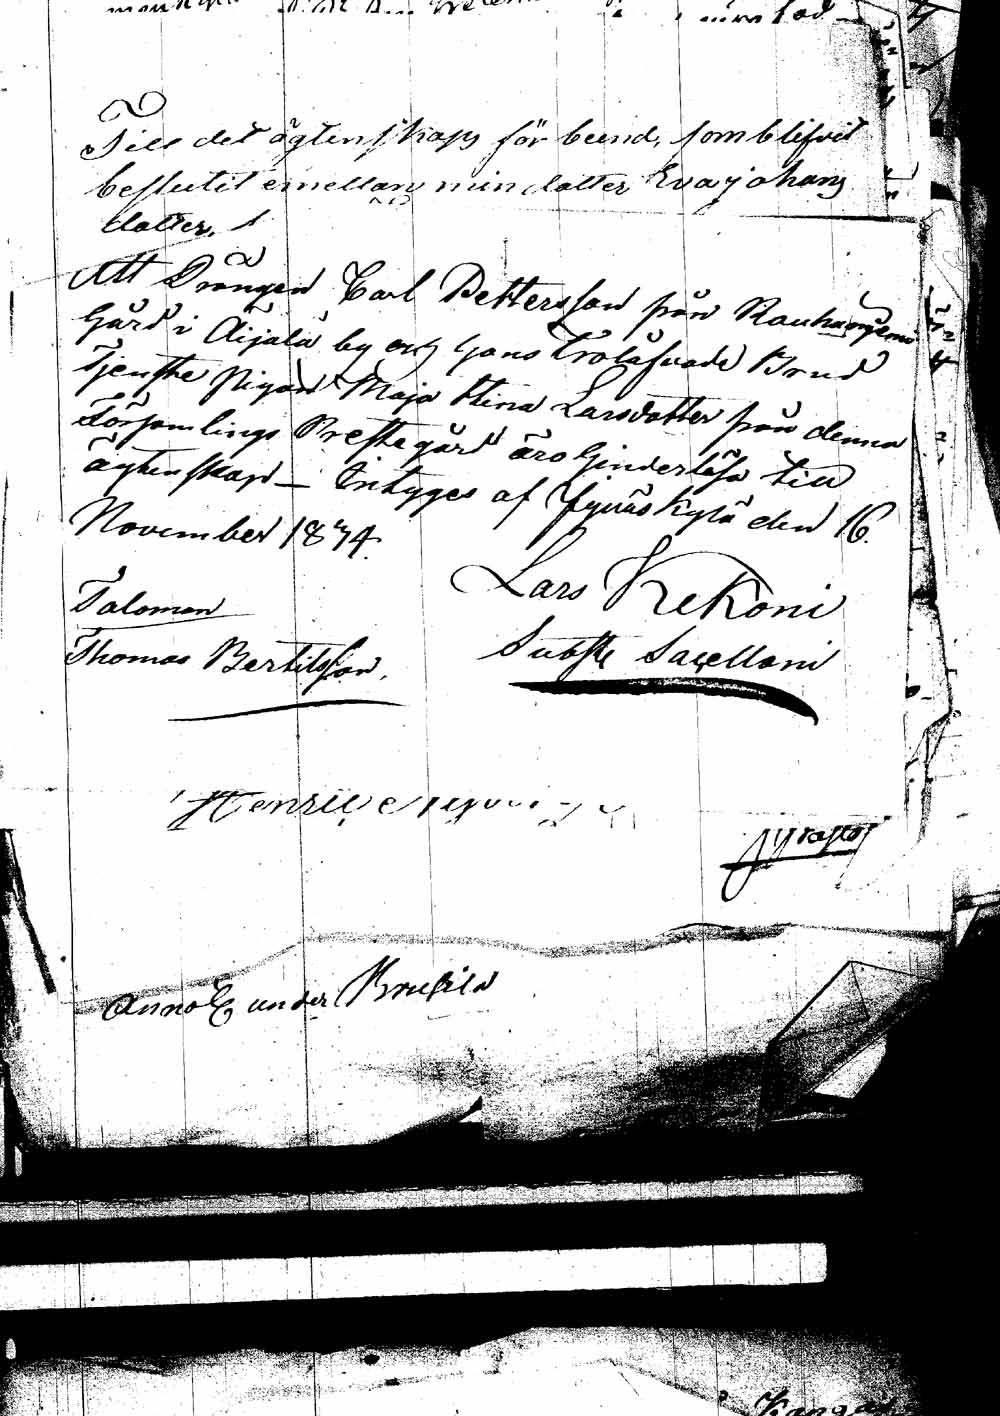 Till det ägtenskaps för beend, som blifvit
beslutit emellan min dotter Eva johans
dotter,
Att Drängen Carl Pettersson från Rauhaniemi
Gård i Äijälä by och hans Trolåfvade Brud
Tjenste Pigan Maja Stina Larsdotter från denna
Församlings Prestegård äro hinderlösa till
ägtenskap – Intyges af Jyväskylä den 16.
November 1874.
Lars Kekoni
Taloman
Subste Sacellani
Thomas Bertilsson,
Henric
Anno E under
Kangas